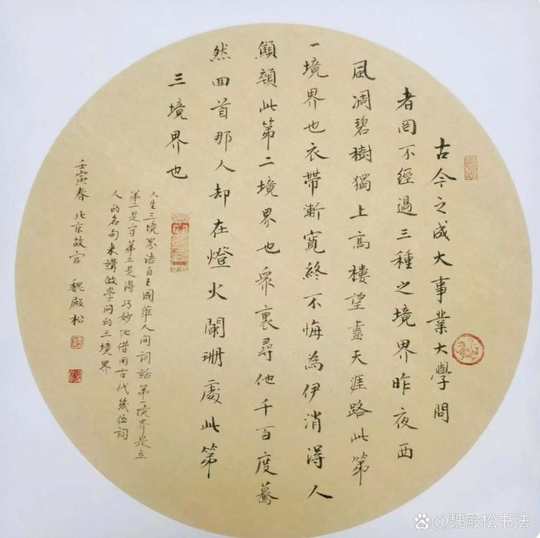 古今之成大事業大學問
者罔不經過三種之境界昨夜西
風凋碧樹獨上高樓望盡天涯路此第
一境界也衣帶漸寬終不悔為伊消得人
顦顇此第二境界也眾裏尋他千百度驀
然回首那人却在燈火闌珊處此第
三境界也
人生三境界語自王國維人間詞話第一境界是立
第二是守第三是得巧妙地借用古代幾位詞
人的名句來講做學問的三境界
壬寅春北京故宮 魏殿松
魏敬松书法